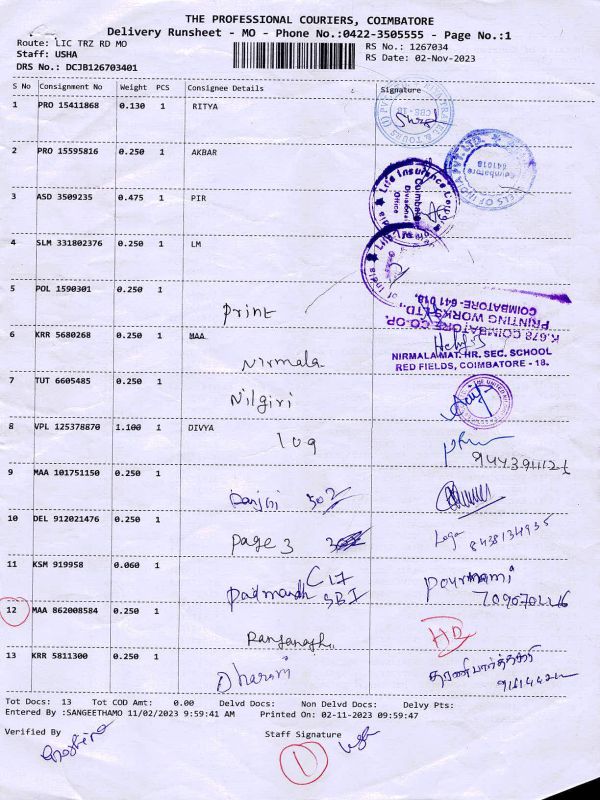 THE PROFESSIONAL COURIERS, COIMBATORE
Delivery Runsheet - MO - Phone No.:0422-3505555 - Page No.:1
Route: LIC TRZ RD MO
RS No.: 1267034
Staff: USHA
RS Date: 02-Nov-2023
DRS No.: DCJB126703401
S No Consignment No Weight PCS Consignee Details Signature
1 PRO 15411868 0.130 1 RITYA
2 PRO 15595816 0.250 1 AKBAR
3 ASD 3509235 0.475 1 PIR
Life Insurance
Coimbatore
Divisional
Office
4 SLM 331802376 0.250 1 LM
5 POL 1590301 0.250 1
Print
K.678 COIMBATORE CO-OP.
PRINTING WORKS LTD.,
COIMBATORE-641 018.
6 KRR 5680268 0.250 1 MAA
Nirmala
NIRMALA MAT. HR. SEC. SCHOOL
RED FIELDS, COIMBATORE - 18.
7 TUT 6605485 0.250 1
Nilgiri
8 VPL 125378870 1.100 1 DIVYA
109
9 MAA 101751150 0.250 1
Ranjni 302
10 DEL 912021476 0.250 1
Page 3
8438134935
11 KSM 919958 0.060 1
C17
SBI
Pournami
12 MAA 862008584 0.250 1
HD
13 KRR 5811300 0.250 1
Dharani
Tot Docs: 13 Tot COD Amt: 0.00 Delvd Docs: Non Delvd Docs: Delvy Pts:
Entered By :SANGEETHAMO 11/02/2023 9:59:41 AM Printed On: 02-11-2023 09:59:47
Verified By Staff Signature
1